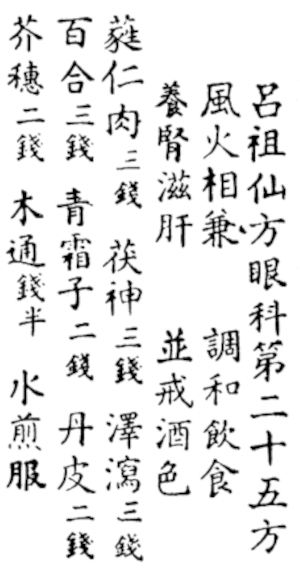 呂祖仙方眼科第二十五方
風火相兼 調和飲食
養腎滋肝 並戒酒色
蕤仁肉三錢 茯神三錢 澤瀉三錢
百合三錢 青霜子二錢 丹皮二錢
芥穗二錢 木通錢半 水煎服